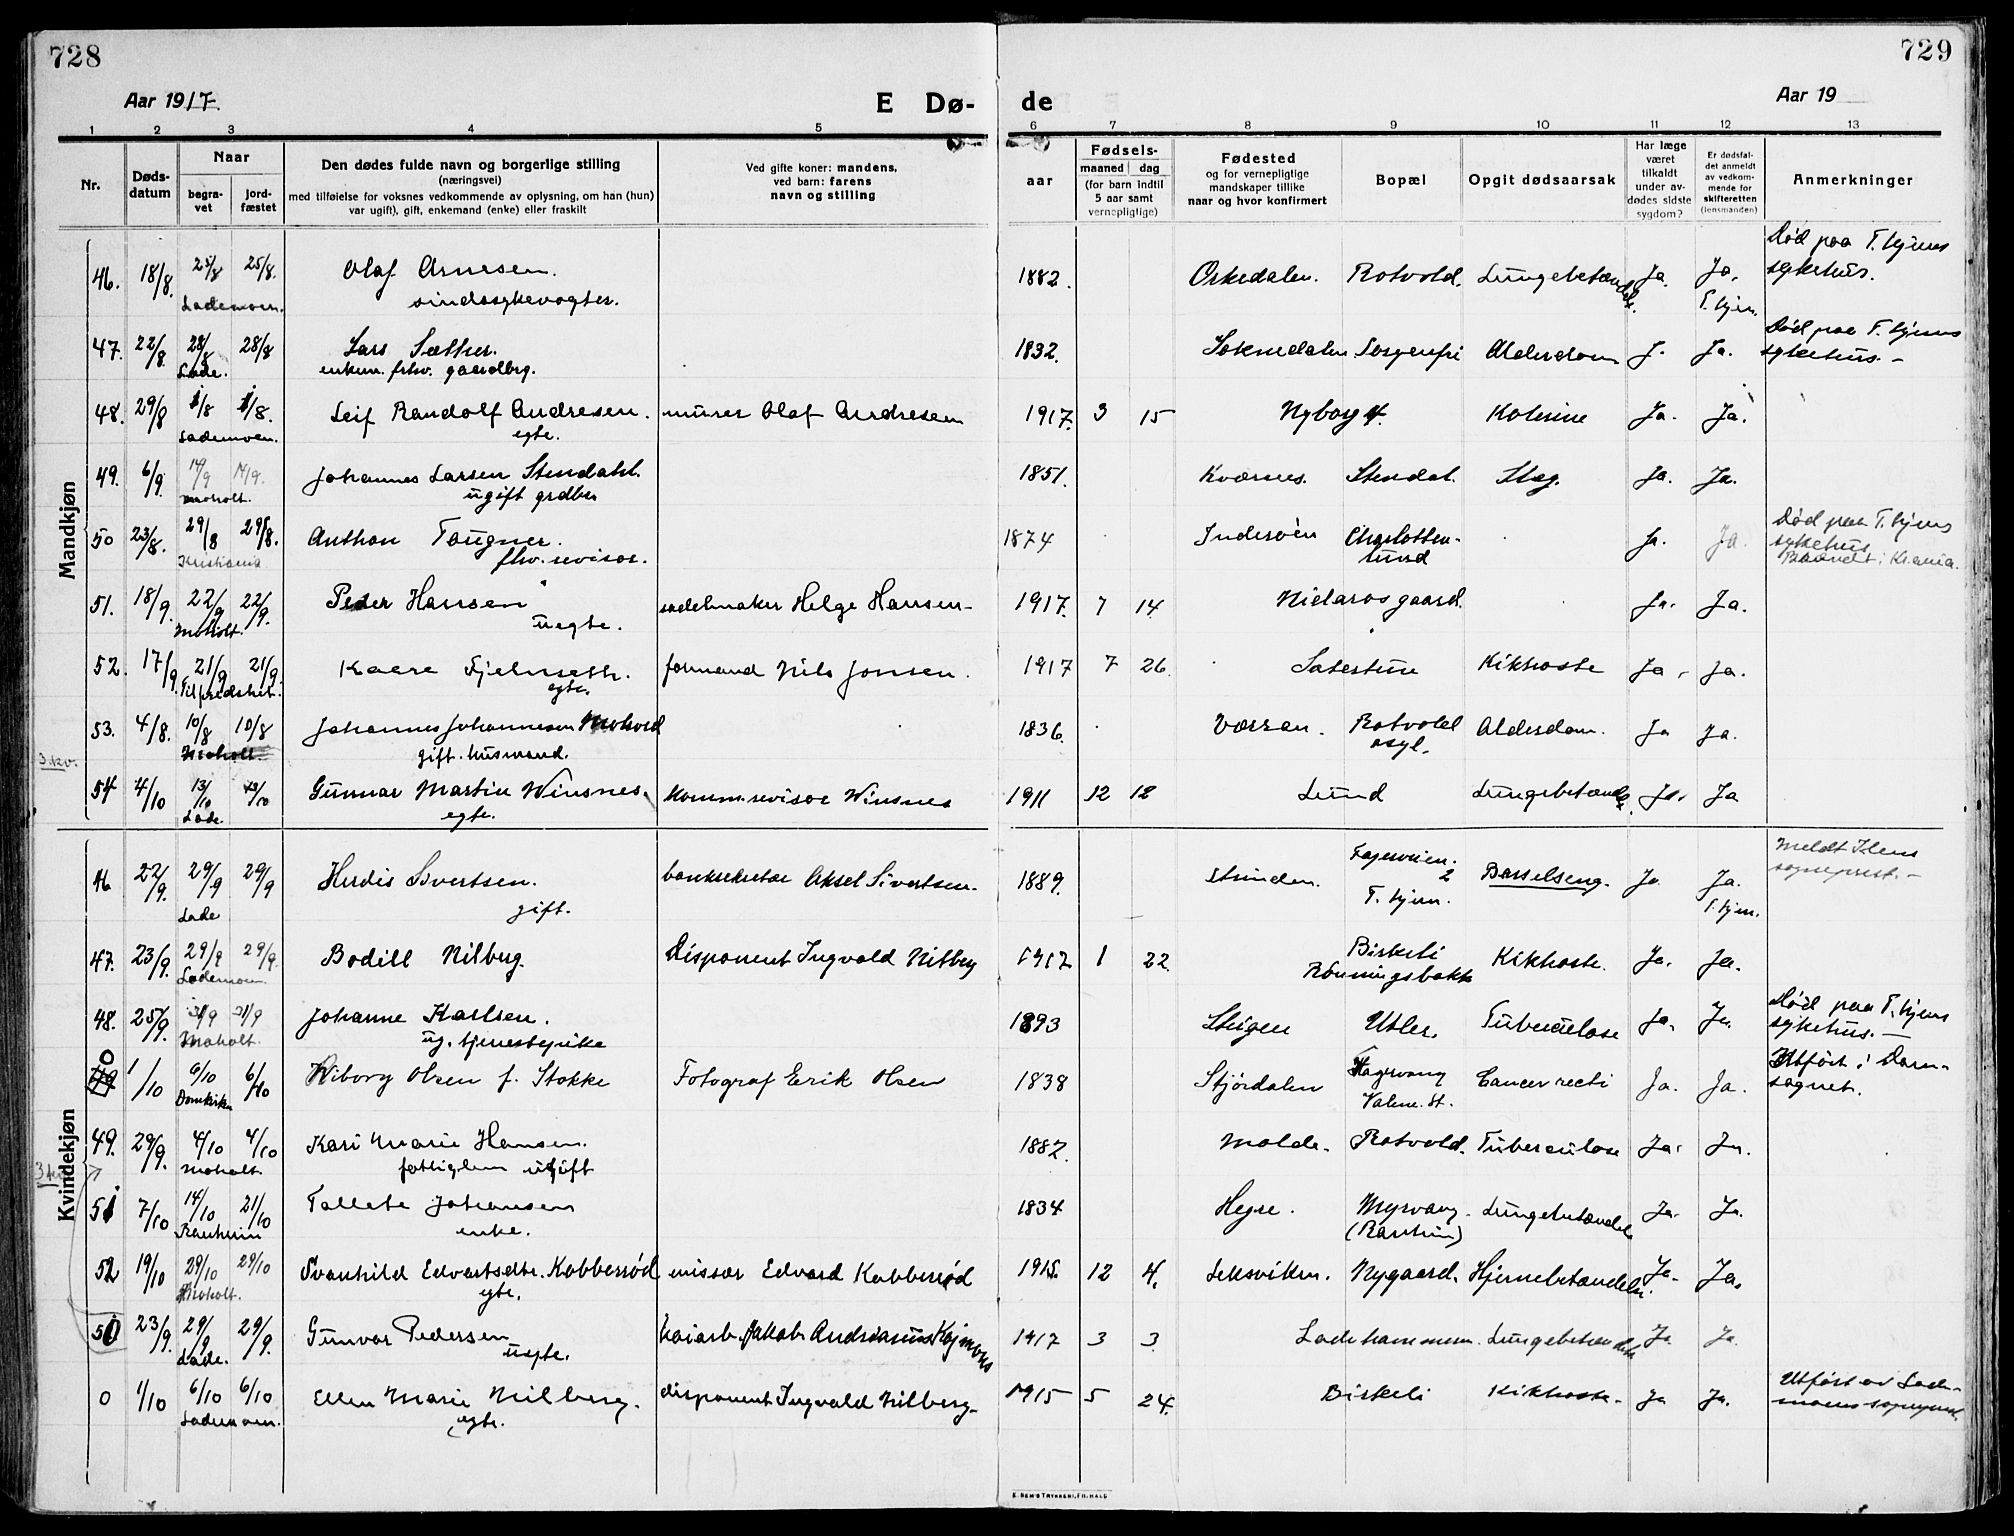 728
729
Aar 1917.
E Dø-
de
Aar 19
1 2 3 4 5 6 7 8 9 10 11 12 13
Nr.
Døds-
datum
Naar
begra-
vet
jord-
fæstet
Den dødes fulde navn og borgerlige stilling
(næringsvei)
med tilføielse for voksnes vedkommende av oplysning, om han (hun)
var ugift), gift, enkemand (enke) eller fraskilt
Ved gifte koner: mandens,
ved barn: farens
navn og stilling
aar
Fødsels-
maaned dag
(for barn indtil
5 aar samt
vernepligtige)
Fødested
og for vernepligtige
mandskaper tillike
naar og hvor konfirmert
Bopæl
Opgit dødsaarsak
Har læge
været
tilkaldt
under av-
dødes sidste
sygdom?
Er dødsfal-
det anmeldt
av vedkom-
mende for
skifteretten
(lensmanden)
Anmerkninger
Mandkjøn
46. 18/8. 25/8 25/8. Olaf Arnesen. 1882. Orkedalen. Rotvold. Lungebetændel. Ja. Ja. Død paa T.hjems
Lademoen. sindssykevogter. T.hjem. sykehus.
47. 22/8. 28/8 28/8 Lars Sæther. 1832. Soknedalen Sorgenfri Alderdom J. Ja. Død paa T.hjems
Lade. enkem. fhv. gaardbrg. sykehus. -
48. 29/8 1/8 1/8. Leif Randolf Andresen. murer Olaf Andresen 1917. 3 15 Nyborg 4. Kolerine Ja. Ja.
Lademoen. egte.
49. 6/9. 14/9 14/9. Johannes Larsen Stendahl. 1851. Kværnes. Stendal. Slag. Ja. Ja.
Moholt. ugift grdbr
50 23/8. 29/8 29/8. Anthon Taugner. 1874 Inderøen Charlotten- Ja. Ja. Død paa T.hjems
Kristiania fhv. revisor. lund sykehus
Brændt i Kr.ania.
51. 18/9. 22/9 22/9. Peder Hansen sadelmaker Helge Hansen- 1917. 7 14. Nidarosgaard. Ja. Ja.
Moholt. uegte.
52. 17/9. 21/9 21/9 Kaare Fjelnseth. formand Nils Jonsen. 1917 7 26. Kikhoste Ja. Ja.
Tilfredshet. egte.
53. 4/8. 10/8 10/8 Johannes Johannesen Mohord 1836. Værran. Rotvold Aldersdom. Ja Ja.
Moholt. gift. husmand. asyl.
3.kv.
54 4/10 13/10 13/10 Gunnar Martin Winsnes. komm.revisor Winsnes 1911 12 12 Lund Lungebetændel. Ja. Ja
Lade egte.
Kvindekjøn
46 22/9. 29/9 29/9 Herdis Sivertsen. banksekretær Aksel Sivertsen. 1889. Strinden. Fagerveien. 2 Barselseng. Ja Ja. Meldt Ilens
Lade gift. T.hjem. T.hjem. sogneprest. -
47. 23/9. 29/9 29/9. Bodill Nilberg. Disponent Ingvald Nilberg 1917 1 22. Birkeli Kikhoste. Ja. Ja.
Lademoen. Rønningsbakk
48. 25/9. 31/9 31/9 Johanne Karlsen. 1893 Steigen Utler. Tuberculose Ja. Ja. Død paa T.hjems
Moholt. ug. tjenestepike sykehus. -
50 1/10 6/10 6/10 Wiborg Olsen f. Stokke Fotograf Erik Olsen 1838 Stjørdalen Hagevang Cancer recti Ja. Ja. Utført i Dom-
Domkirken Valene. St. sognet.
49. 29/9. 4/10 4/10 Kari Marie Hansen. 1882. Molde. Rotvold. Tuberculose Ja. Ja.
Moholt. fattiglem ugift
51 7/10 14/10 21/10 Tallete Johansen 1834 Hegre. Myrvang. Lungebetændel Ja. Ja.
Ranheim enke. (Ranheim)
52 19/10 29/10 29/10 Svanhild Edvartsdtr. Kobberrød missær Edvard Kobberrød 1915. 12 4. Leksviken. Nygaard. Hjernebetændelse. Ja. Ja.
Moholt. egte.
50 23/9. 29/9 29/9. Gunvor Pedersen kaiarb. Jakob Andrianus 1917 3 3 Ladehammeren. Lungebetændelse Ja Ja.
Lade. uegte.
0 1/10 6/10 6/10 Ellen Marie Nilberg. disponent Ingvald Nilberg- 1915 5 24. Birkeli Kikhoste. Ja Ja. Utført av Lade-
Lademoen. egte. moens sogneprest.
E. SEM'S TRYKKERI, FR.HALD